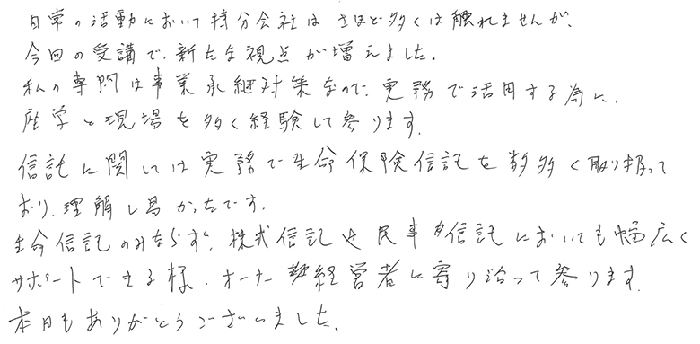 日常の活動において持分会社はさほど多くは触れませんが、
今回の受講で、新たな視点が増えました。
私の専門は事業承継対策なので、実務で活用する為に、
座学と現場を多く経験して参ります。
信託に関しては実務で生命保険信託を数多く取り扱って
おり、理解し易かったです。
生命信託のみならず、株式信託や民事信託においても幅広く
サポートできる様、オーナー経営者に寄り沿って参ります。
本日もありがとうございました。